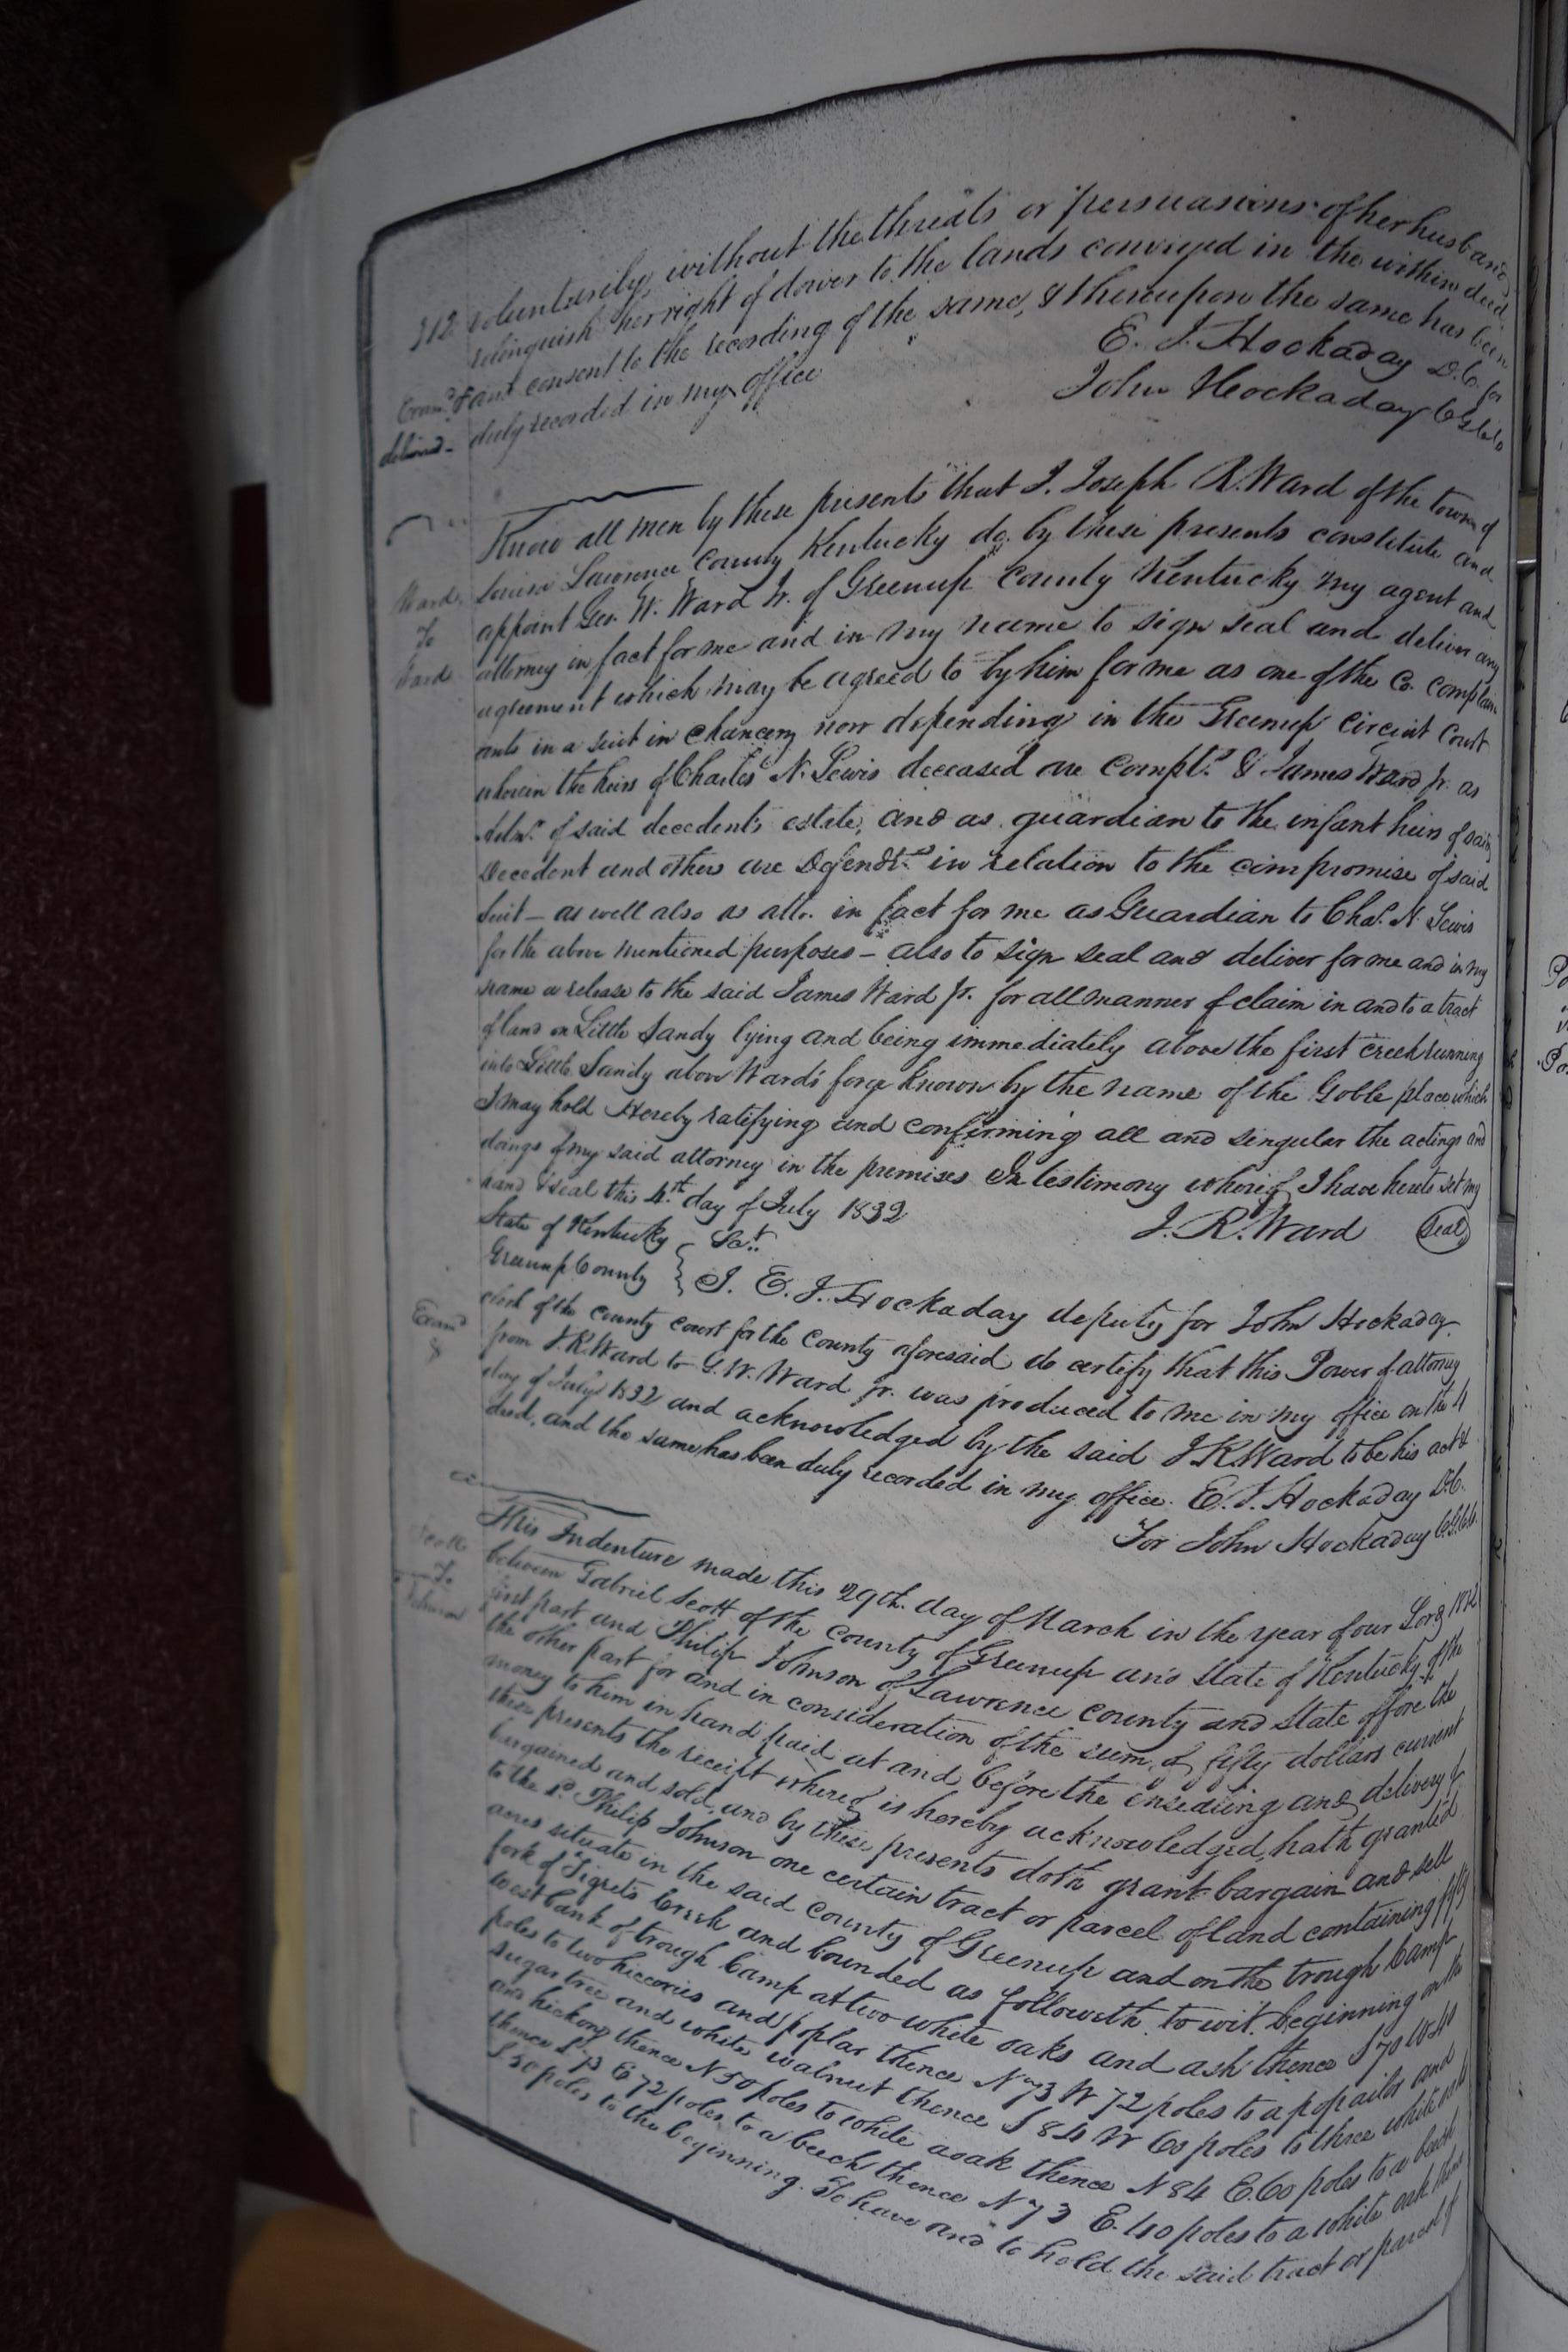 312 voluntarily, without the threats or persuasions of her husband
relinquish her right of dower to the lands conveyed in the within deed
Exam.d & and consent to the recording of the same, & thereupon the same has been
delivered- duly recorded in my office
E. J. Hockaday D.C. for
John Hockaday
Know all men by these presents that I. Joseph R. Ward of the town of
Ward Louisa Lawrence County Kentucky do by these presents constitute and
To appoint Geo. W. Ward Jr. of Greenup County Kentucky my agent and
Ward attorney in fact for me and in my name to sign seal and deliver any
agreement which may be agreed to by him for me as one of the Co. complain
ants in a suit in chancery now depending in the Greenup Circuit Court
wherein the heirs of Charles N. Lewis deceased are Complts. & James Ward Jr. as
Adm.r of said decedent's estate, and as guardian to the infant heirs of said
Decedent and others are Defendts. in relation to the compromise of said
Suit - as well also as atto. in fact for me as Guardian to Chas. N. Lewis
for the above mentioned purposes - also to sign seal and deliver for me and in my
name a release to the said James Ward Jr. for all manner of claim in and to a tract
of land on Little Sandy lying and being immediately above the first creek running
into Little Sandy above Ward's forge known by the name of the Goble place which
I may hold Hereby ratifying and confirming all and singular the actings and
doings of my said attorney in the premises In testimony whereof I have hereto set my
hand & seal this 4th day of July 1832
J. R. Ward (Seal)
State of Kentucky
Greenup County } Sct.
I. E. J. Hockaday deputy for John Hockaday
clerk of the county court for the county aforesaid do certify that this Power of attorney
Exam.d & from J. R. Ward to G. W. Ward Jr. was produced to me in my office on the 4
day of July 1832 and acknowledged by the said J R Ward to be his act &
deed, and the same has been duly recorded in my office. E. J. Hockaday D.C.
For John Hockaday
This Indenture made this 29th. day of March in the year of our Lord 1832
Scott between Gabriel Scott of the County of Greenup and State of Kentucky of the
To first part and Philip Johnson of Lawrence County and State affore the
Johnson the other part for and in consideration of the sum of fifty dollars current
money to him in hand paid at and before the ensealing and delivery of
these presents the receipt whereof is hereby acknowledged, hath granted
bargained and sold, and by these presents doth grant bargain and sell
to the sd. Philip Johnson one certain tract or parcel of land containing fifty
acres situate in the said County of Greenup and on the trough Camp
fork of Tigrets Creek and bounded as followeth to wit. beginning on the
west bank of trough Camp at two white oaks and ash thence S 70 W
poles to two hiccories and poplar thence N 73 W 72 poles to a popailor and
sugartree and white walnut thence S 84 W 60 poles to three white
and hickory thence N 50 poles to white aoak thence N 84 E. 60 poles to a beech
thence S 73 E 72 poles to a beech thence N 73 E. 40 poles to a white oak thence
S. 50 poles to the beginning. To have and to hold the said tract or parcel of